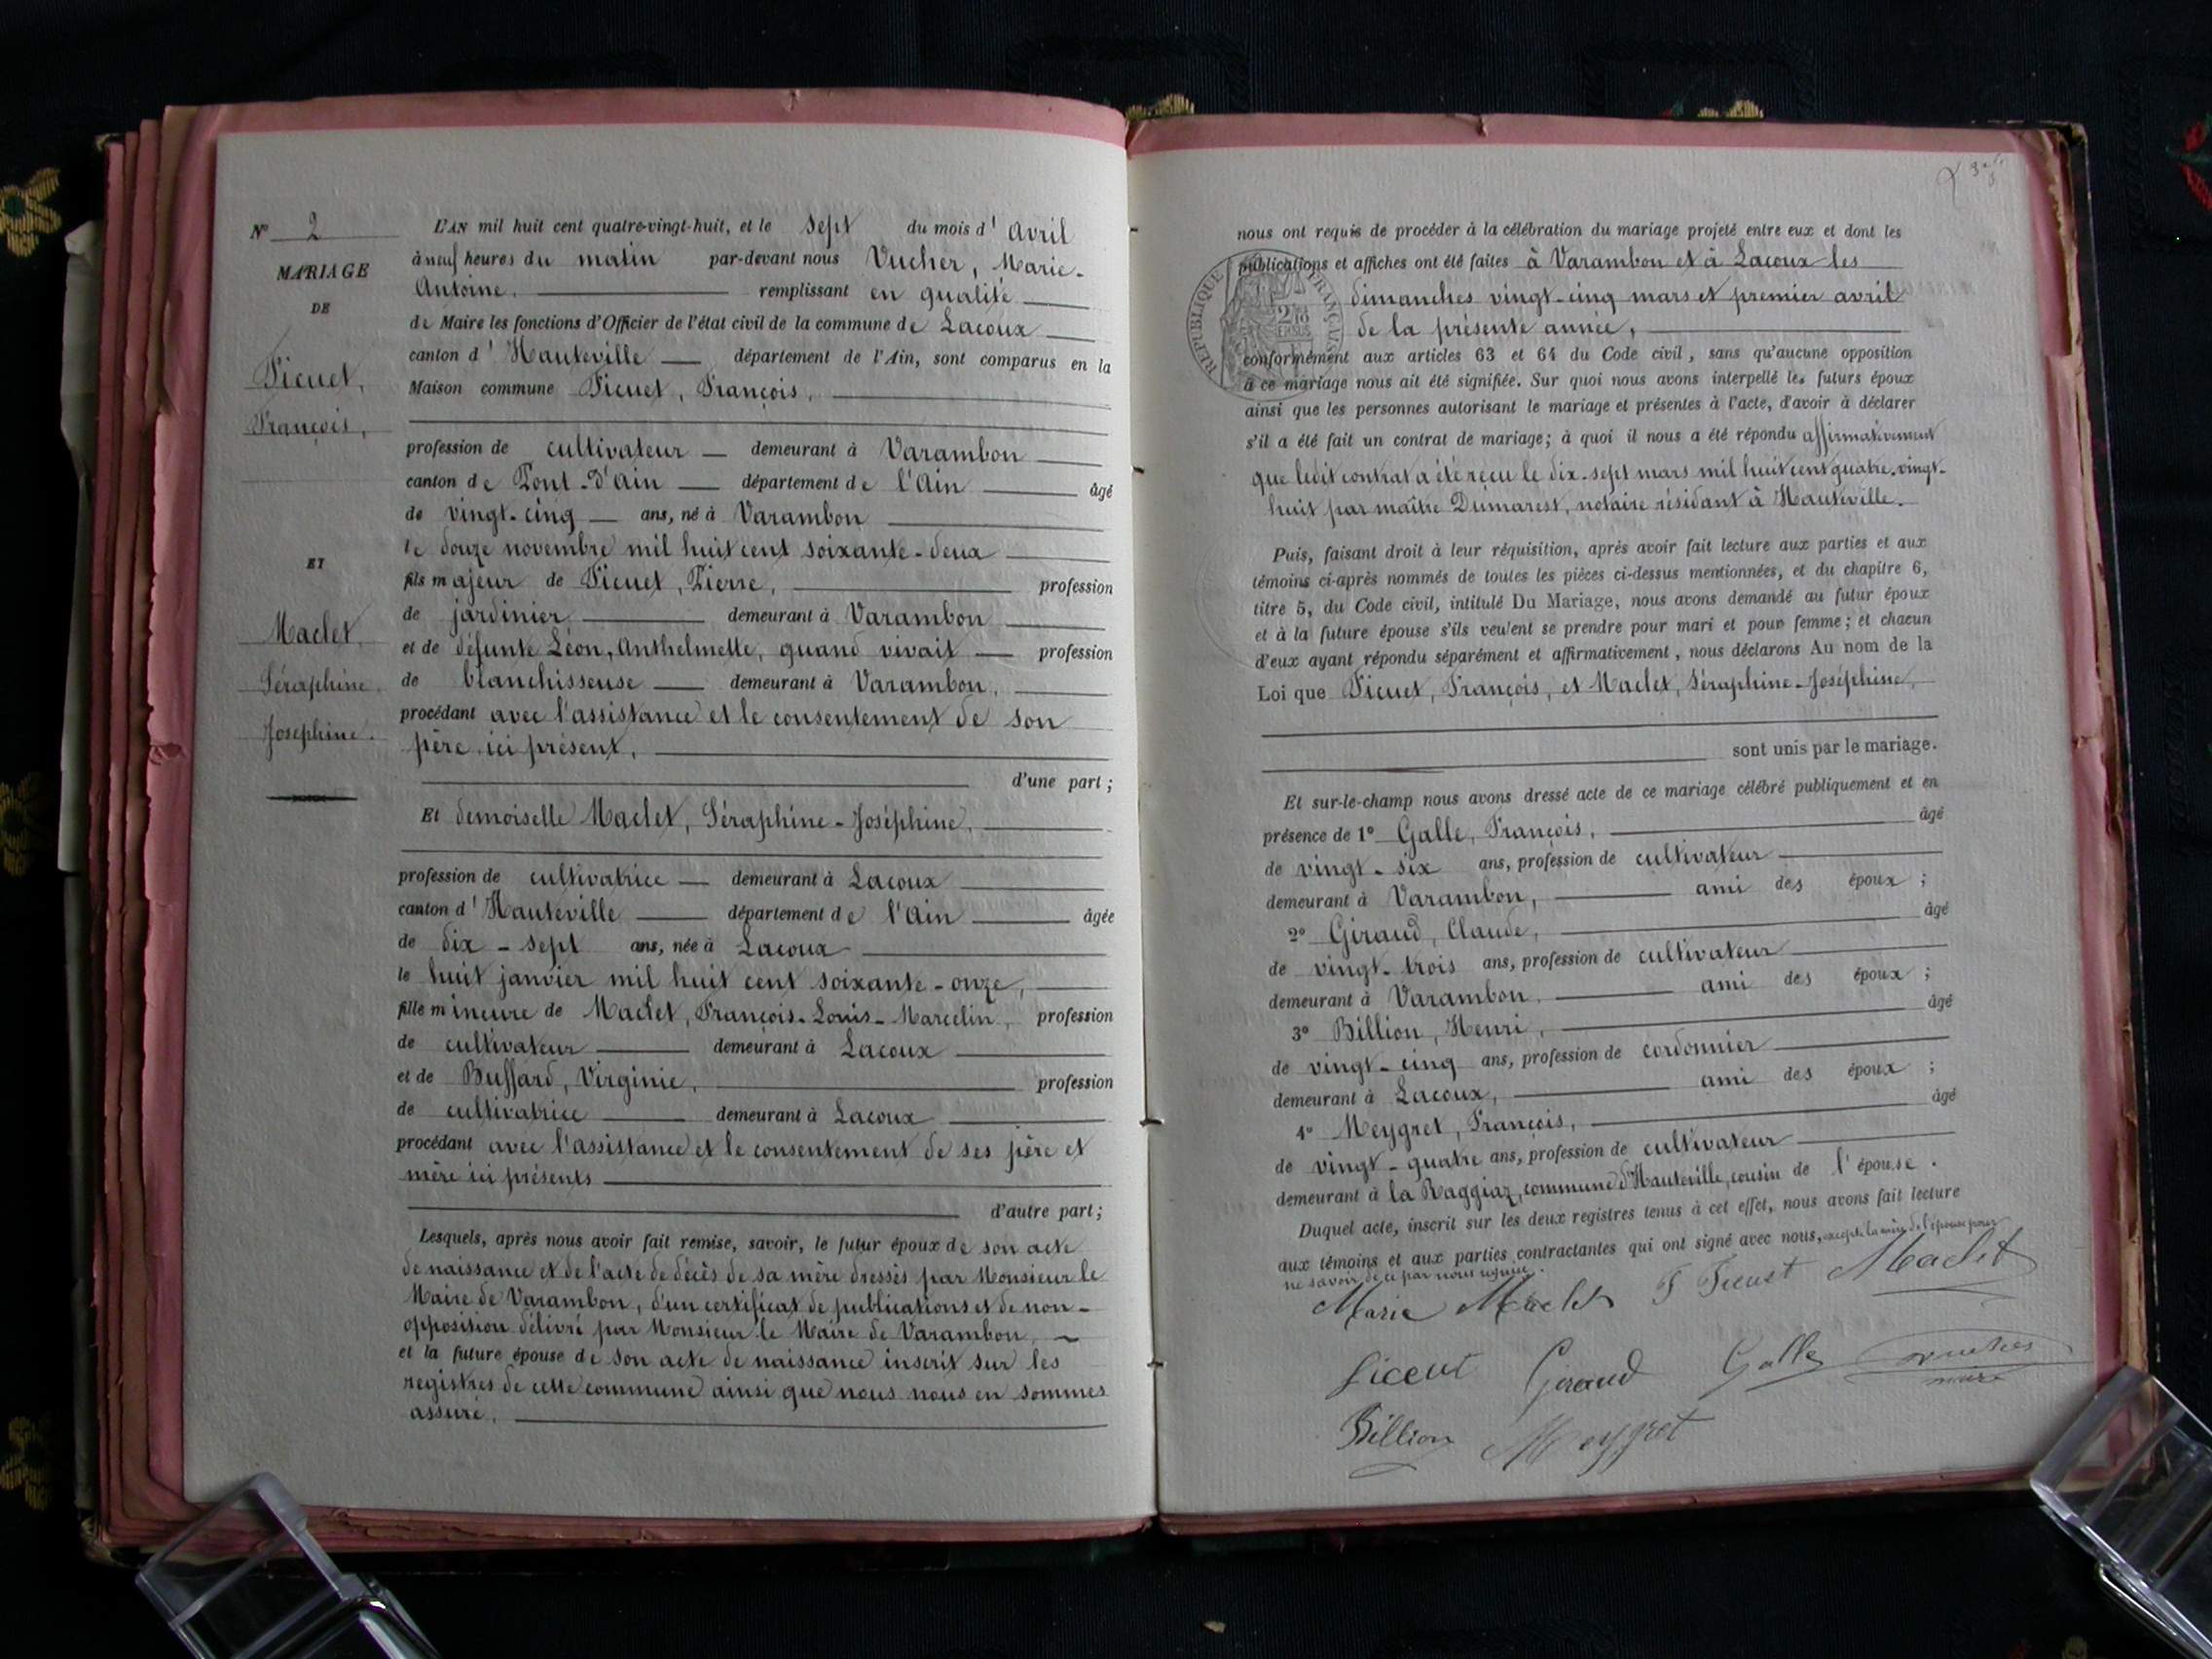 N° 2
MARIAGE
DE
Picuet,
François,
ET
Maclet,
Séraphine
Joséphine.
L'AN mil huit cent quatre-vingt-huit, et le sept du mois d'avril
à neuf heures du matin par-devant nous Vucher, Marie-
Antoine, remplissant en qualité
de Maire les fonctions d'Officier de l'état civil de la commune de Lacoux
canton d'Hauteville département de l'Ain, sont comparus en la
Maison commune Picuet, François,
profession de cultivateur demeurant à Varambon
canton de Pont-d'Ain département de l'Ain âgé
de vingt-cinq ans, né à Varambon
le douze novembre mil huit cent soixante-deux
fils majeur de Picuet, Pierre, profession
de jardinier demeurant à Varambon
et de défunte Léon, Anthelmette, quand vivait profession
de blanchisseuse demeurant à Varambon,
procédant avec l'assistance et le consentement de son
père ici présent,
d'une part ;
Et demoiselle Maclet, Séraphine-Joséphine,
profession de cultivatrice demeurant à Lacoux
canton d'Hauteville département de l'Ain âgée
de dix-sept ans, née à Lacoux
le huit janvier mil huit cent soixante-onze,
fille mineure de Maclet, François-Louis-Marcelin, profession
de cultivateur demeurant à Lacoux
et de Buffard, Virginie, profession
de cultivatrice demeurant à Lacoux
procédant avec l'assistance et le consentement de ses père et
mère ici présents
d'autre part ;
Lesquels, après nous avoir fait remise, savoir, le futur époux de son acte
de naissance et de l'acte de décès de sa mère dressés par Monsieur le
Maire de Varambon, d'un certificat de publications et de non-
opposition délivré par Monsieur le Maire de Varambon,
et la future épouse de son acte de naissance inscrit sur les
registres de cette commune ainsi que nous nous en sommes
assuré,
nous ont requis de procéder à la célébration du mariage projeté entre eux et dont les
publications et affiches ont été faites à Varambon et à Lacoux les
dimanches vingt-cinq mars et premier avril
de la présente année,
RÉPUBLIQUE FRANÇAISE
conformément aux articles 63 et 64 du Code civil, sans qu'aucune opposition
à ce mariage nous ait été signifiée. Sur quoi nous avons interpellé les futurs époux
ainsi que les personnes autorisant le mariage et présentes à l'acte, d'avoir à déclarer
s'il a été fait un contrat de mariage ; à quoi il nous a été répondu affirmativement
que ledit contrat a été reçu le dix-sept mars mil huit cent quatre-vingt-
huit par maître Dumarest, notaire résidant à Hauteville.
Puis, faisant droit à leur réquisition, après avoir fait lecture aux parties et aux
témoins ci-après nommés de toutes les pièces ci-dessus mentionnées, et du chapitre 6,
titre 5, du Code civil, intitulé Du Mariage, nous avons demandé au futur époux
et à la future épouse s'ils veulent se prendre pour mari et pour femme ; et chacun
d'eux ayant répondu séparément et affirmativement, nous déclarons Au nom de la
Loi que Picuet, François, et Maclet, Séraphine-Joséphine,
sont unis par le mariage.
Et sur-le-champ nous avons dressé acte de ce mariage célébré publiquement et en
présence de 1° Galle, François, âgé
de vingt-six ans, profession de cultivateur
demeurant à Varambon, ami des époux ;
2° Giraud, Claude, âgé
de vingt-trois ans, profession de cultivateur
demeurant à Varambon, ami des époux ;
3° Billion, Henri, âgé
de vingt-cinq ans, profession de cordonnier
demeurant à Lacoux, ami des époux ;
4° Meygret, François, âgé
de vingt-quatre ans, profession de cultivateur
demeurant à la Raggiaz, commune d'Hauteville, cousin de l'épouse.
Duquel acte, inscrit sur les deux registres tenus à cet effet, nous avons fait lecture
aux témoins et aux parties contractantes qui ont signé avec nous, excepté la mère de l'épouse pour
ne savoir de ce par nous requise.
Marie Maclet F Picuet Maclet
Picuet Giraud Galle Vucher
maire
Billion Meygret